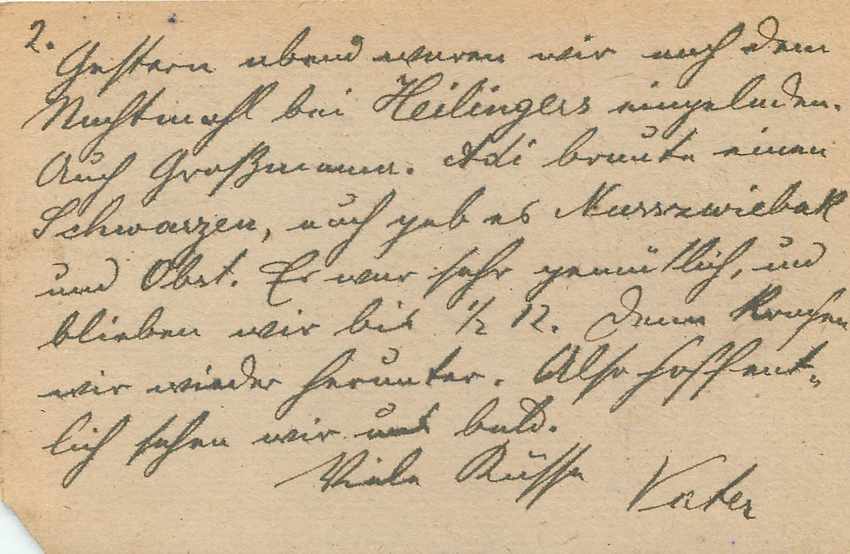 2.
Gestern abend waren wir nach dem
Nachtmahl bei Heilingers eingeladen.
Auch Großmama. Adi braute einen
Schwarzen, auch gab es Nusszwieback
und Obst. Es war sehr gemütlich, und
blieben wir bis 1/2 12. Dann krochen
wir wieder herunter. Also hoffent-
lich sehen wir uns bald.
Viele Küsse Vater